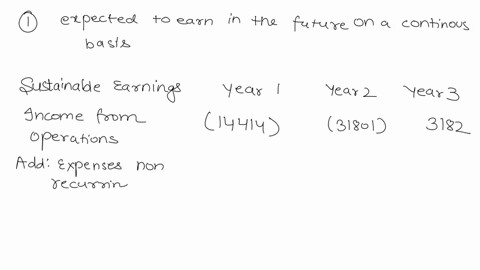 ① expected to earn in the future on a continous
basis
Sustainable Earnings Year 1 Year 2 Year 3
Income from
operations (14414) (31801) 3182
Add: Expenses non
recurrin